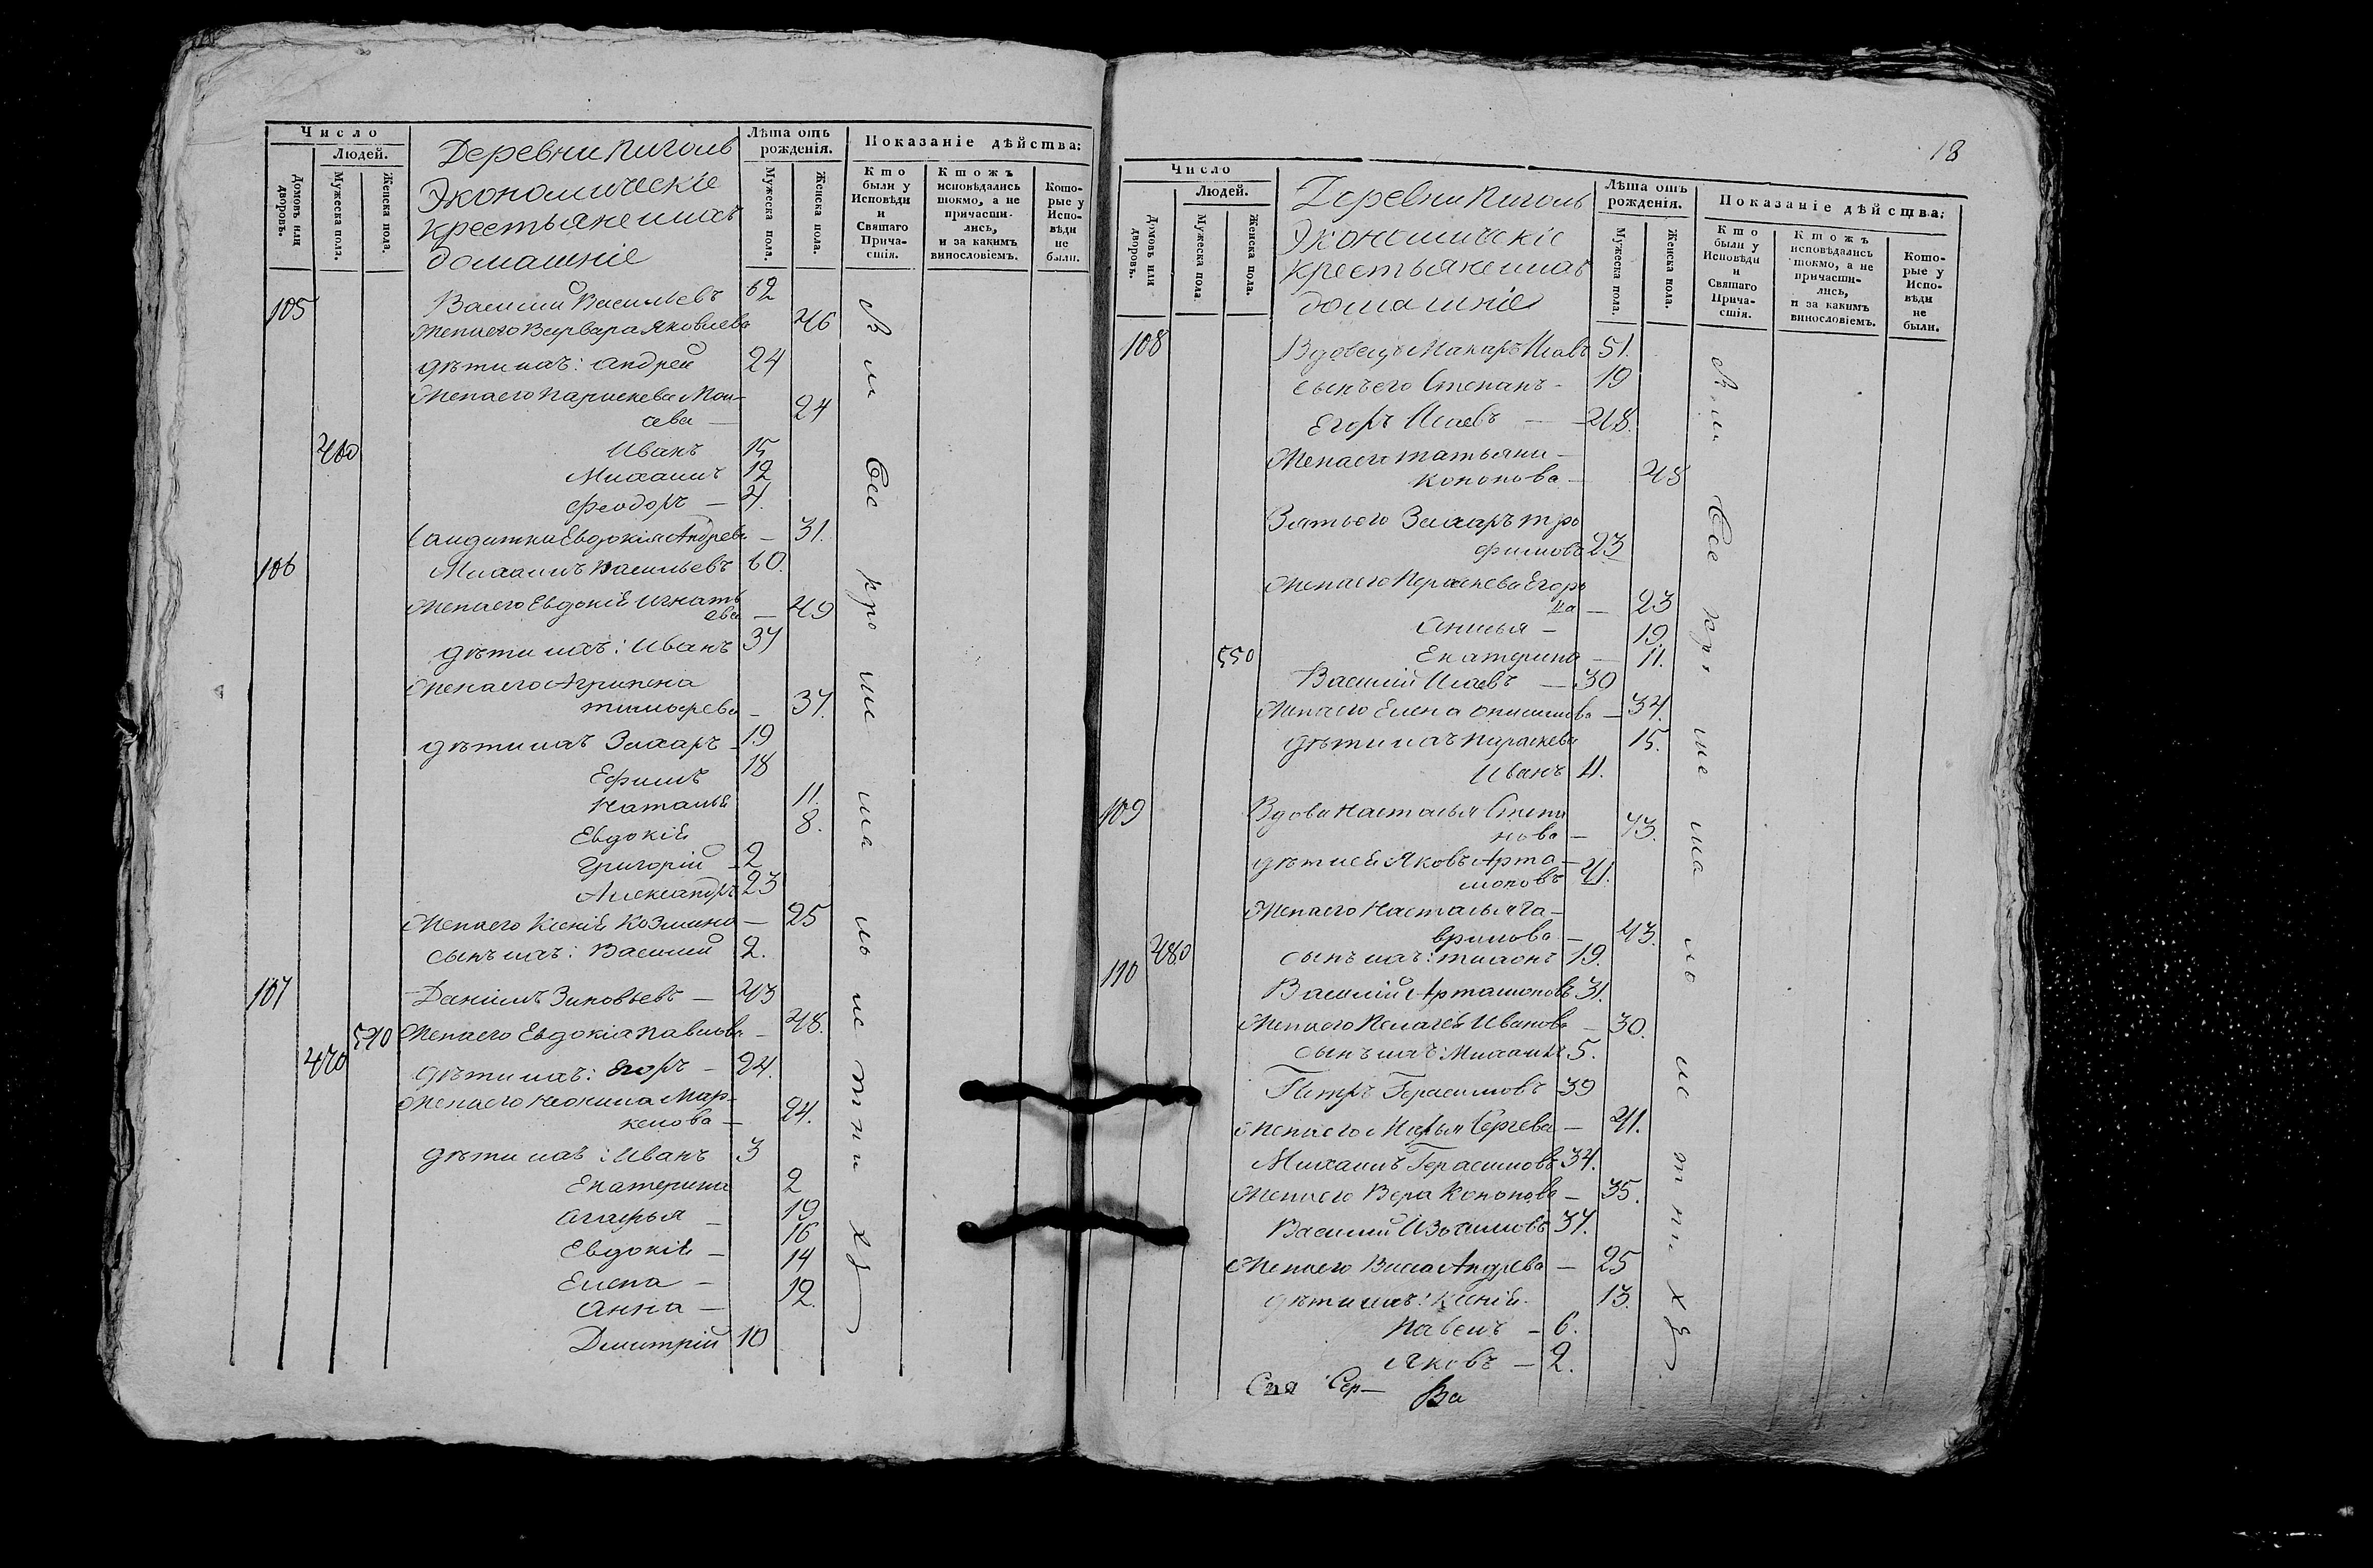 Число
Людей.
Домовъ или дворовъ.
Мужеска пола.
Женска пола.
Деревни Пиголь
Экономическіе
крестьяне ихъ
домашніе
Лѣта отъ рожденія.
Мужеска пола.
Женска пола.
Показаніе дѣйства:
Кто были у Исповѣди и Святаго Причастія.
Ктожъ исповѣдались токмо, а не причастились, и за какимъ винословіемъ.
Которые у Исповѣди не были.
105 Василій Васильевъ 62
Жена его Варвара Яковлева 46
дѣти ихъ: Андрей 24
Жена его Параскева Мои-
сева — 24
460 Иванъ 15
Михаилъ 12
Феодоръ — 4.
Салдатка Евдокія Андрева — 31.
106 Михаилъ Васильевъ 60.
Жена его Евдокія Игнать
ева — 49
дѣти ихъ: Иванъ 37
Жена его Агрипена
— 37.
дѣти ихъ Захаръ — 19
Ефимъ 18
Наталья 11.
Евдокія 8.
Григорій — 2
Александръ 23
Жена его Ксенія Козмина — 25
сынъ ихъ: Василій 2.
107 Даніилъ Зиновьевъ — 43
540 Жена его Евдокія Павлова — 48.
470 дѣти ихъ: Егоръ — 24.
Жена его Неонила Мар-
келова — 24.
дѣти ихъ: Иванъ 3
Екатерина 2
Агафья — 19
Евдокія — 16
Елена — 14
Анна — 12.
Дмитрій 10
18
Число
Людей.
Домовъ или дворовъ.
Мужеска пола.
Женска пола.
Деревни Пиголь
Экономическіе
крестьяне ихъ
домашніе
Лѣта отъ рожденія.
Мужеска пола.
Женска пола.
Показаніе дѣйства:
Кто были у Исповѣди и Святаго Причастія.
Ктожъ исповѣдались токмо, а не причастились, и за какимъ винословіемъ.
Которые у Исповѣди не были.
108 Вдовецъ Макаръ Исаевъ 51.
сынъ его Степанъ — 19
Егоръ Исаевъ — 48.
Жена его Татьяна —
Кононова — 48
Зять его Захаръ Тро
фимовъ 23
Жена его Параскева Егоро
ва — 23
Анисья — 19.
550 Екатерина — 11.
Василій Исаевъ — 30
Жена его Елена Онисимова — 34.
дѣти ихъ Параскева 15.
Иванъ 11.
109 Вдова Настасья Степа
нова — 73.
дѣти ея Яковъ Арта —
моновъ 41.
Жена его Настасья Га —
врилова — 43.
480 сынъ ихъ: Тихонъ 19.
110 Василій Артамоновъ 31.
Жена его Пелагея Иванова — 30.
сынъ ихъ: Михаилъ 5.
Петръ Герасимовъ 39
Жена его Марья Сергева — 41.
Михаилъ Герасимовъ 34.
Жена его Вера Кононова — 35.
Василій Изосимовъ 37.
Жена его Васса Андрева — 25
дѣти ихъ: Ксенія. 13.
Павелъ — 6.
Яковъ — 2.
Сер —
Ва